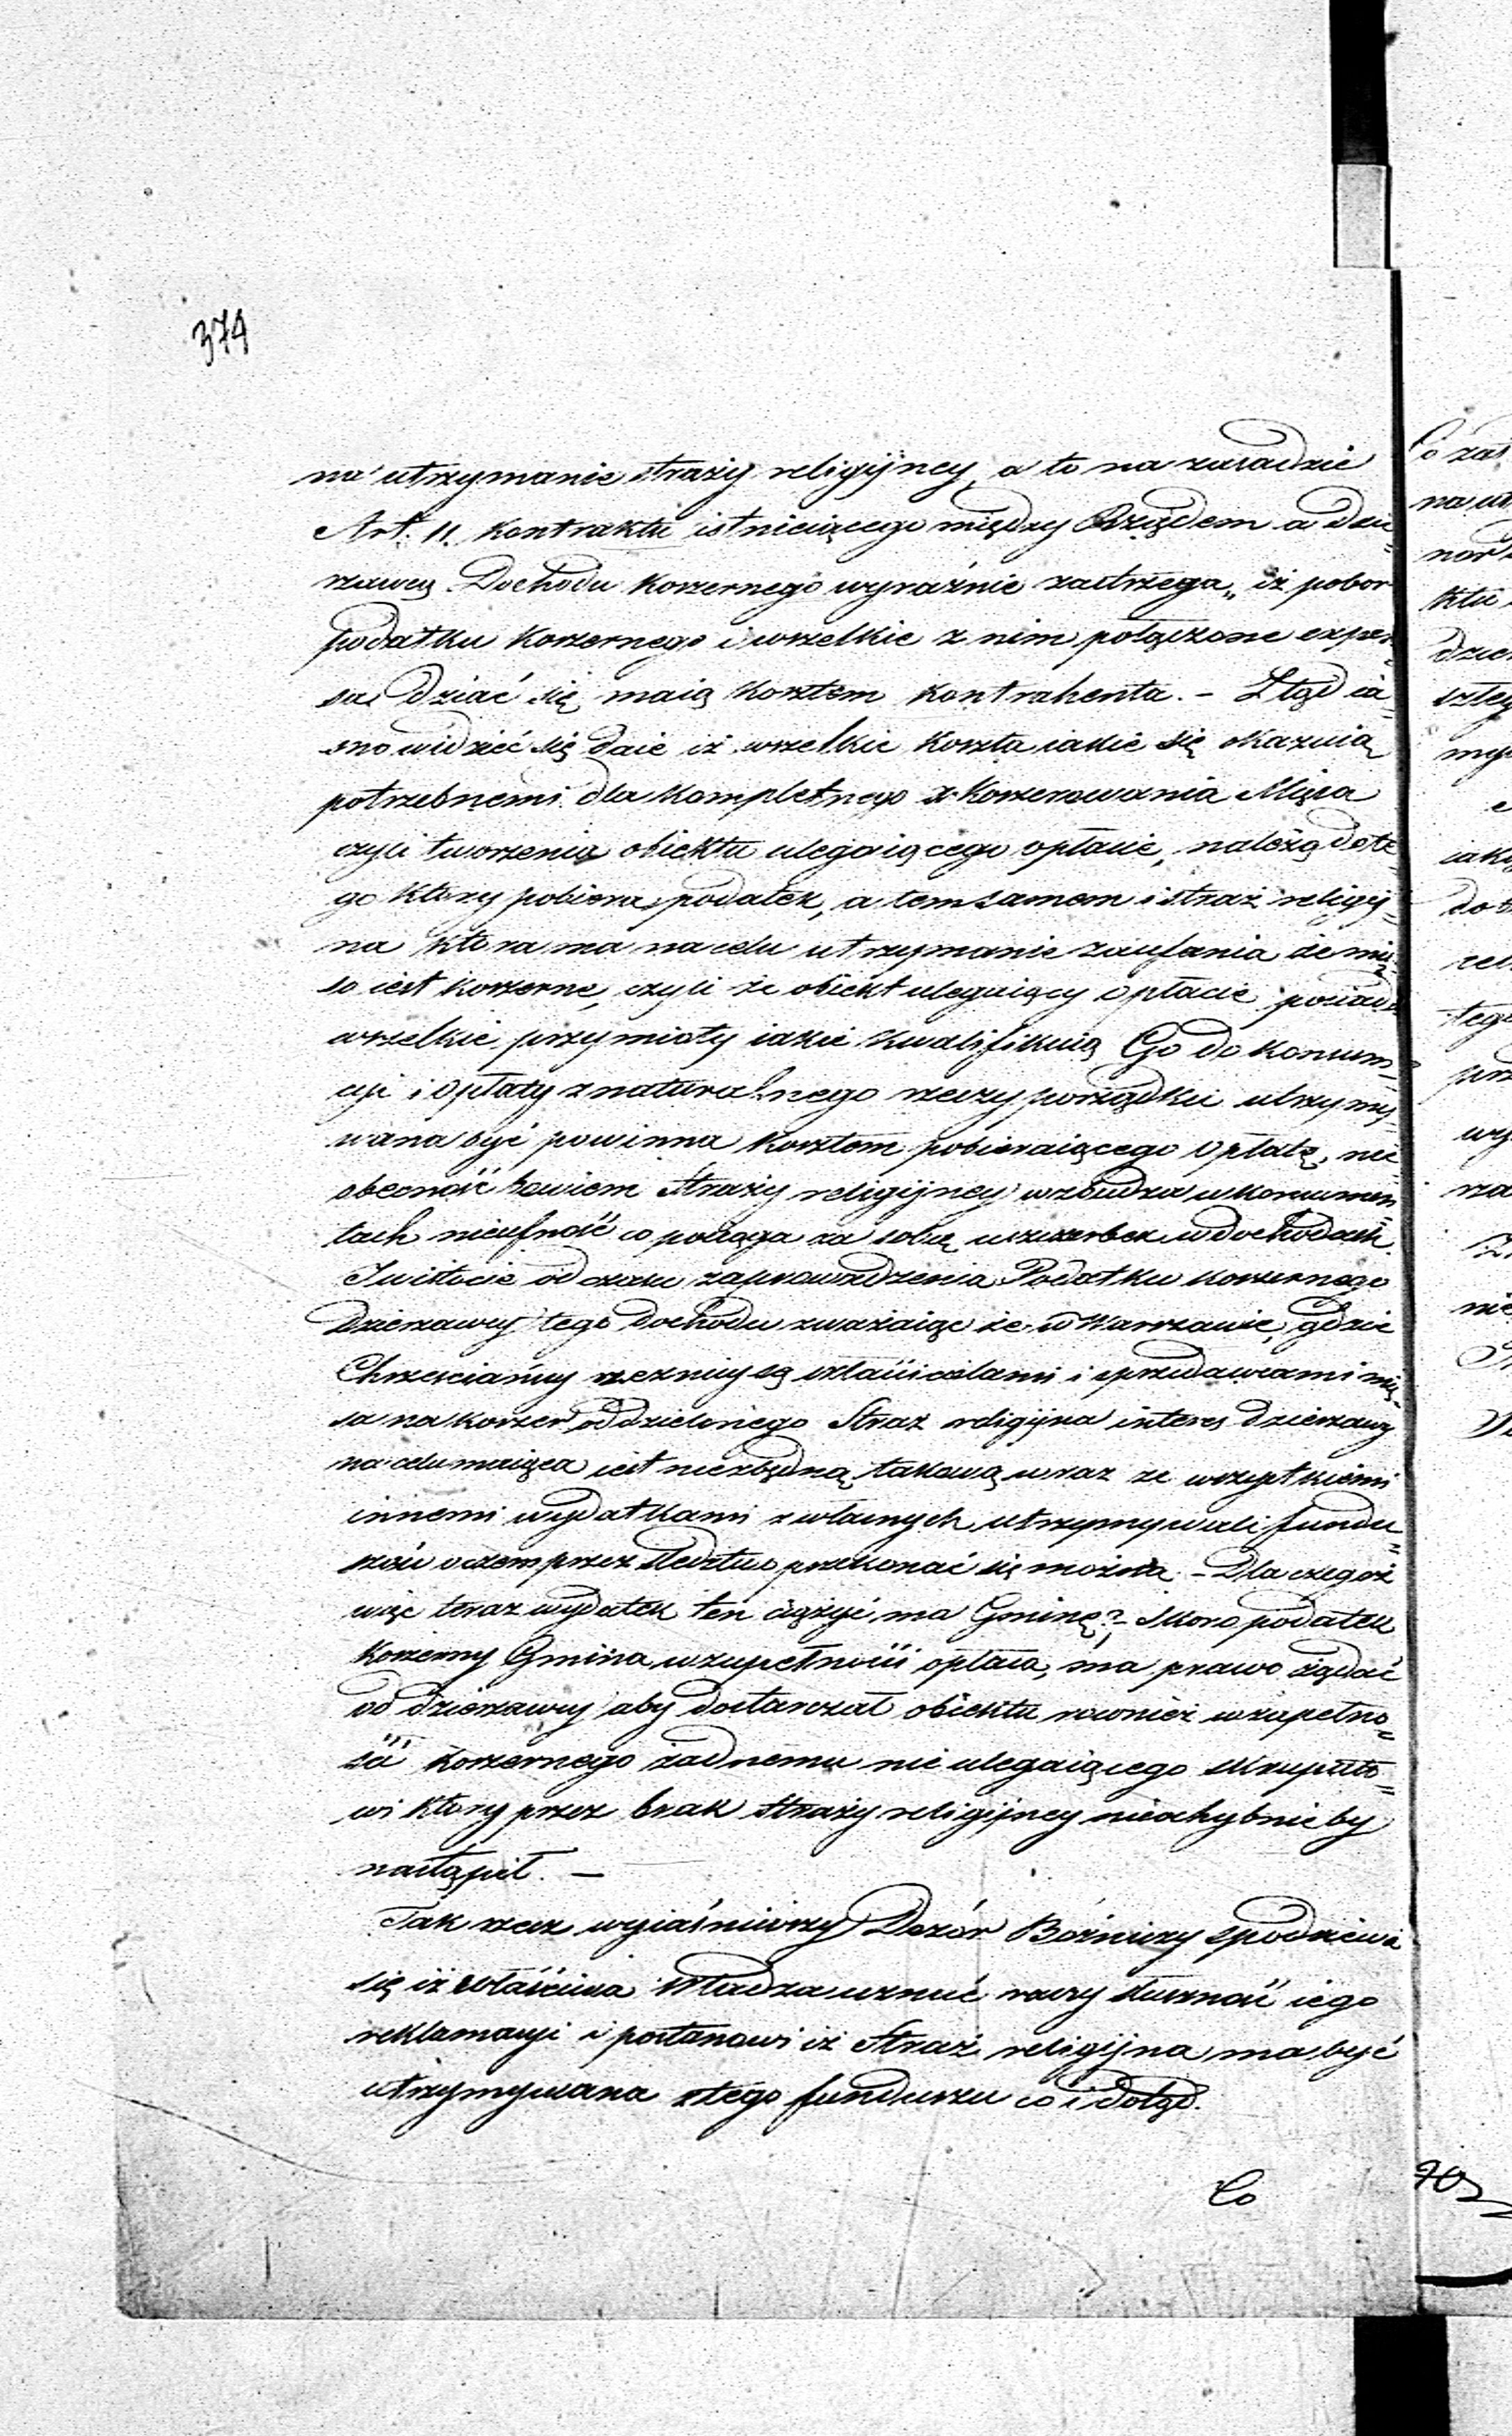 374
na utrzymanie straży religijney, a to na zasadzie
Art. 11. Kontraktu istnieiącego między Rządem a dzie=
rzawcą Dochodu Koszernego wyraźnie zastrzega „iż pobor
podatku Koszernego i wszelkie z nim połączone expen=
sa dziać się maią Kosztem Kontrahenta. – Ztąd ia=
sno widzieć się daie iż wszelkie Koszta iakie się okazuią
potrzebnemi dla Kompletnego Koszerowania Mięsa
czyli tworzenia obiektu ulegaiącego opłacie, należą do te=
go Ktory pobiera podatek, a tem samem i straż religij=
na Ktora ma na celu utrzymanie zaufania że mię=
so iest Koszerne, czyli że obiekt ulegaiący opłacie posiada
wszelkie przymioty iakie Kwalifikuią Go do Konsum=
cji i opłaty z naturalnego rzeczy porządku utrzymy=
wana być powinna Kosztem pobieraiącego opłatę, nie
obecność bowiem Straży religijney wzbudza w Konsumen=
tach nieufność co pociąga za sobą uszczerbek w dochodach.
Jw istocie od czasu zaprowadzenia Podatku Koszernego
Dzierzawcy tego dochodu zważaiąc że w Warszawie, gdzie
Chrzescianscy rzeznicy są właścicielami i sprzedawcami mię=
sa na Koszer oddzielonego Straż religijna interes dzierzawcy
na celu maiąca iest niezbędną, takową wraz ze wszystkiemi
innemi wydatkami z własnych utrzymywali fundu=
szów o czem przez śledztwo przekonać się można. – Dla czegoż
więc teraz wydatek ten ciążyć ma Gminę? – Skoro podatek
Koszerny Gmina w zupełności opłaca, ma prawo żądać
od dzierzawcy aby dostarczał obiektu rownież w zupełno=
ści Koszernego żadnemu nie ulegaiącego skrupuło=
wi Ktory przez brak Straży religijney niechybnie by
nastąpił. –
Tak rzecz wyiaśniwszy Dozór Bóżniczy spodziewa
się iż właściwa Władza uznać raczy słuszność iego
reklamacyi i postanowi iż Straż religijna ma być
utrzymywana z tego funduszu co i dotąd.
Co